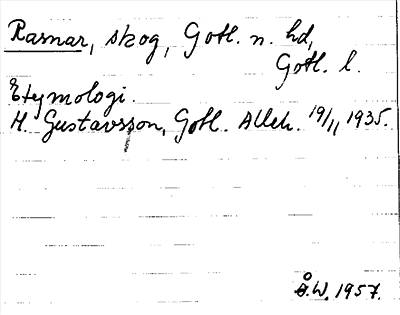 Rasnar, skog, Gotl. n. hd,
Gotl. l.
Etymologi.
H. Gustavsson, Gotl. Alleh. 19/11 1935.
Å.W. 1957.